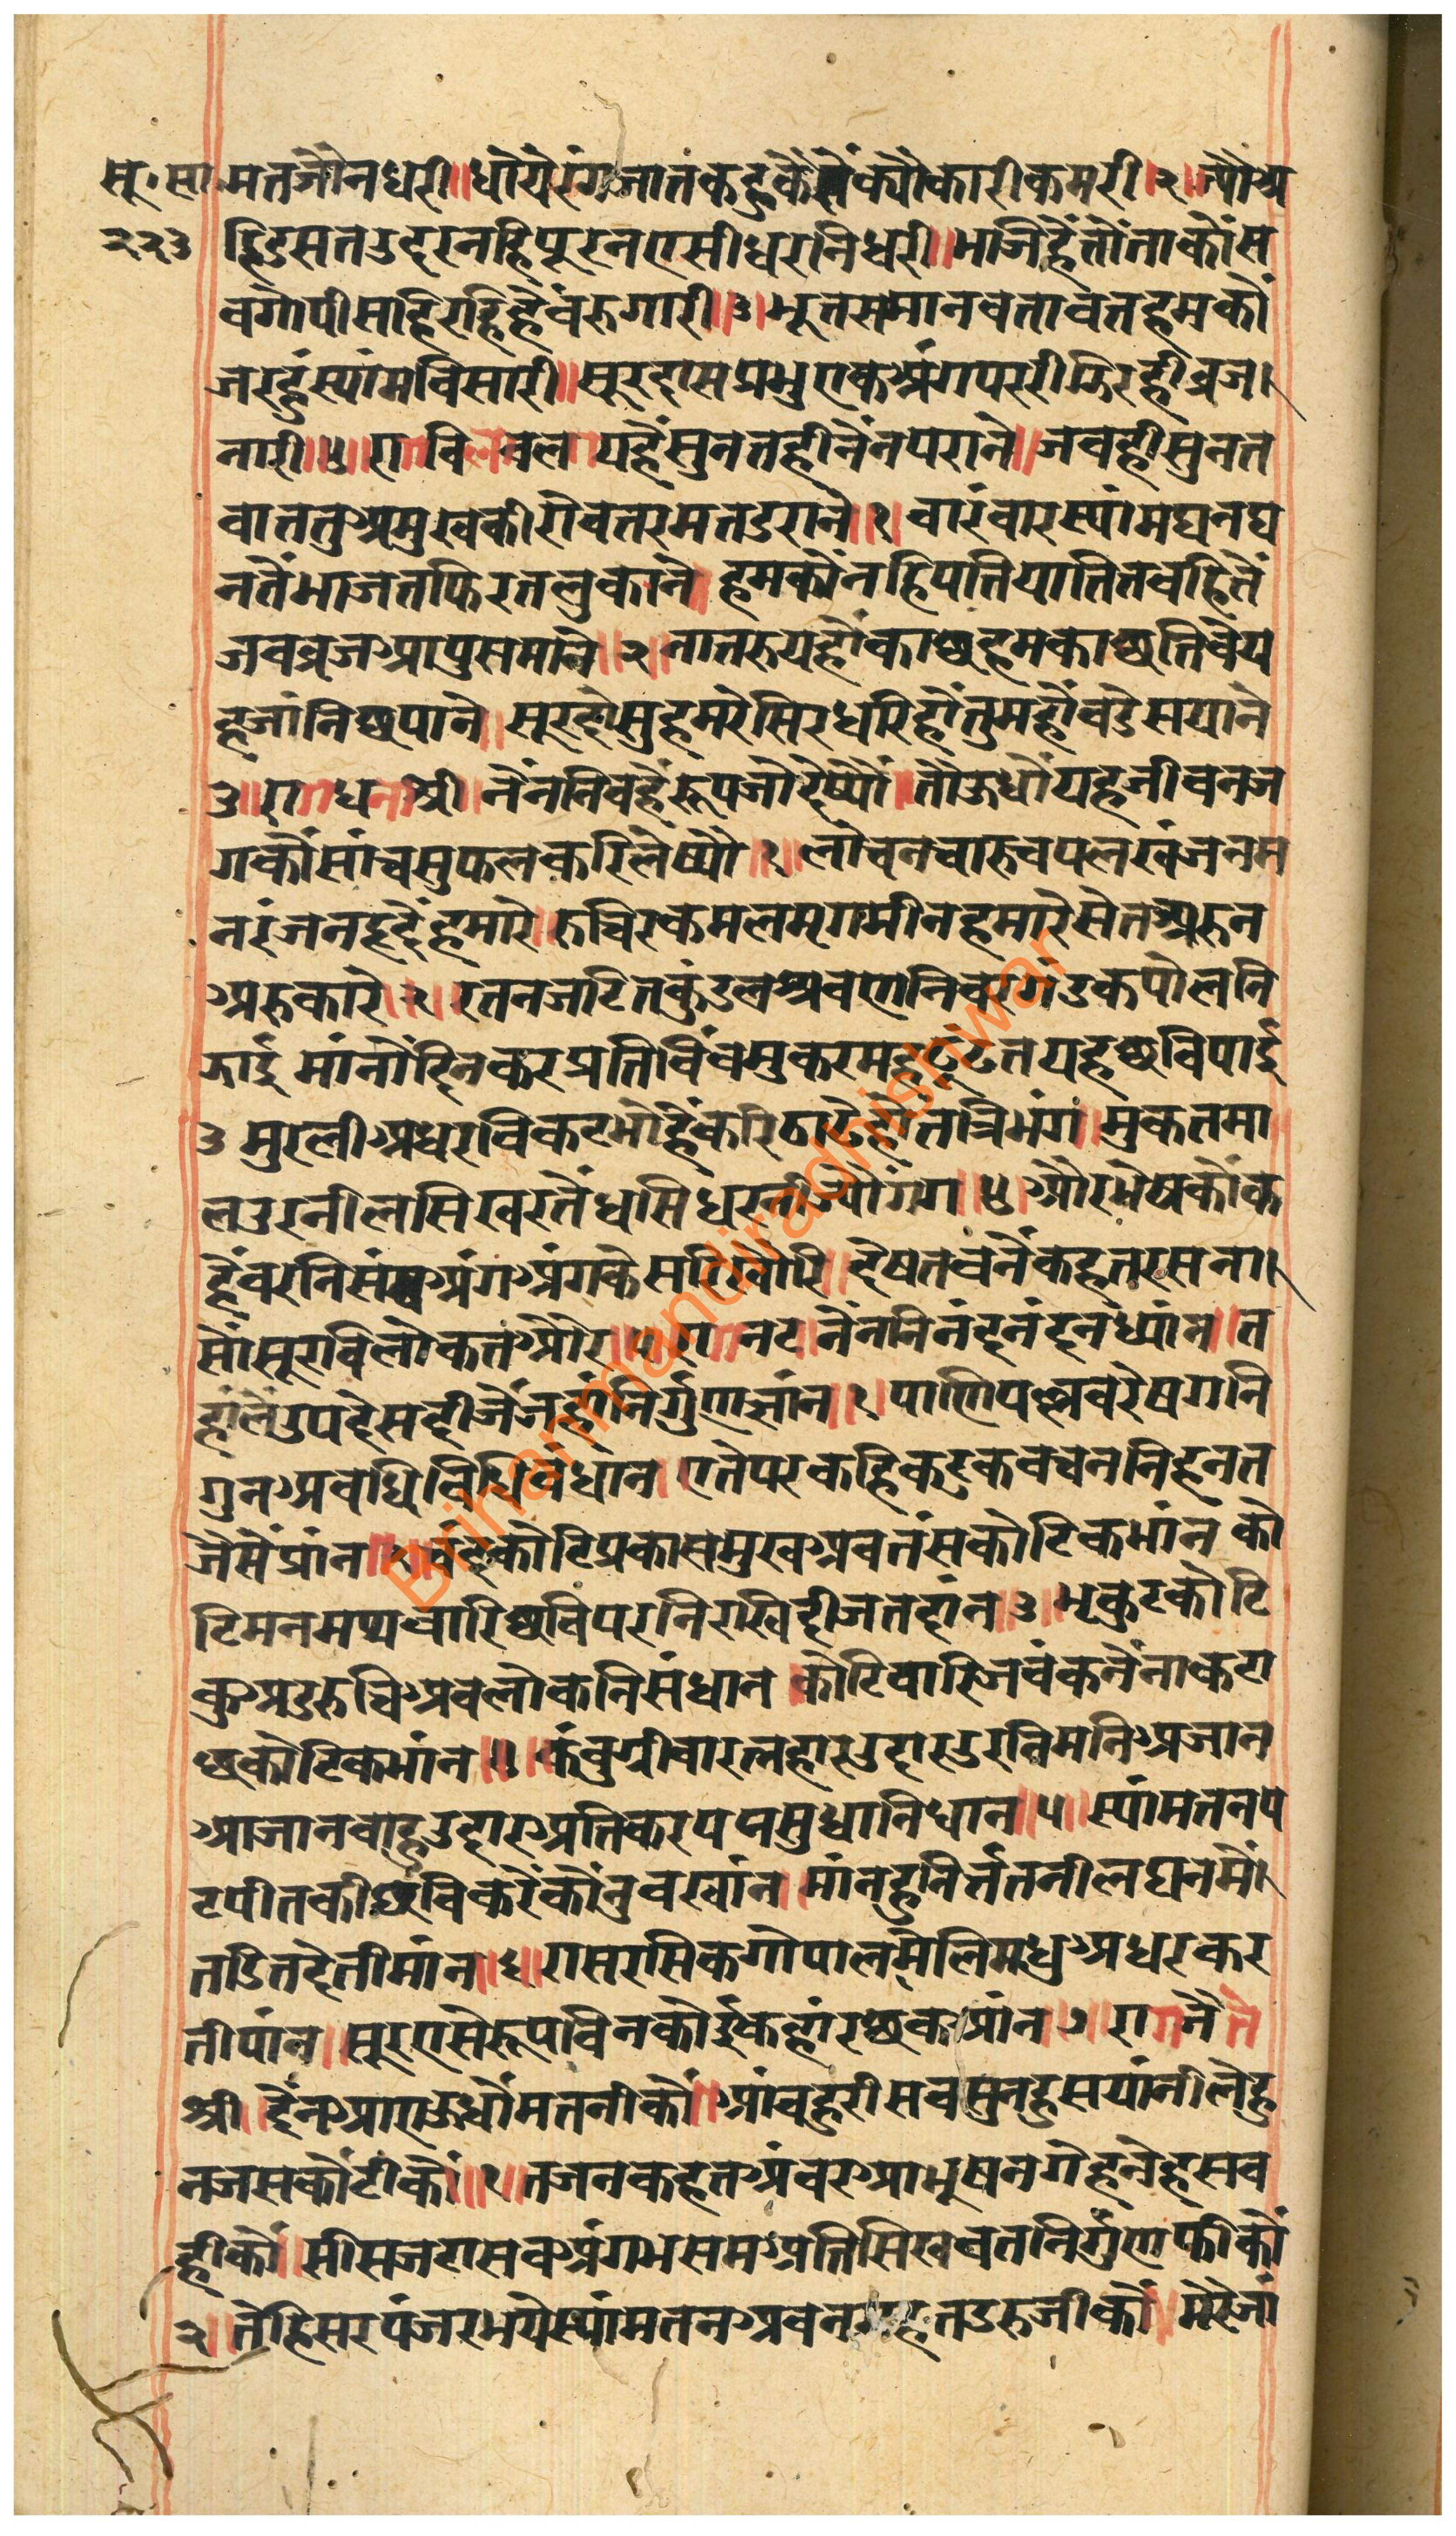 सू॰ सा॰ मतजौनधरी॥ धोयेरंगजातकहुकैसैंक्यौंकारीकमरी।२। ज्यौंअ
२२३ हिडसतउदरनहिपूरनएसीधरनिधरी॥ भाजिहैंतौंताकौंस
वगोपीसहिरहिहैंवरुगारी॥३॥ भूतसमानवतावतहमकौं
जरहुंस्यांमविसारी॥ सूरदासप्रभुएकअंगपररीझिरहीव्रज।
नारी॥४॥ रागविलावल यहैंसुनतहीनैनपराने॥ जवहीसुनत
वाततुअमुखकीरोवतरमतडराने॥१॥ वारंवारस्यांमघनघ
नतैंभाजतफिरतलुकाने॥ हमकौंनहिपतियातितवहितैं
जवव्रजआपुसमाने॥२॥ नातरुयहौकाछहमकाछतिवैय
हजांनिछपाने॥ सूरदोसुहमरेसिरधरिहौंतुमहौंवडेसयाने
३॥ रागधनाश्री॥ नैंननिवहैंरूपजोदेष्यौं॥ तौऊधौयहजीवनज
गकौंसांचसुफलकरिलेष्यौ॥१॥ लोचनचारुचपलखंजनम
नरंजनहृदैंहमारे॥ रुचिरकमलमृगमीनहमारेसेतअरुन
अरुकारे॥२॥ रतनजटितकुंडलश्रवणनिवरगंडकपोलनि
झाई मांनौंदिनकरप्रतिविंवमुकरमहढूंढतयहछविपाई
३ मुरलीअधरविकटभोहैंकरिठाढेहोतत्रिभंग॥ मुकतमा
लउरनीलसिखरतैंधसिधरनीज्यौंगंग॥४॥ औरभेषकौंक
हैंवरनिसवअंगअंगकेसरिखोरि॥ देषतवनैंकहतरसना।
सौंसूरविलोकतऔर॥५॥ रागनट॥ नैंननिनंदनंदनध्यांन॥ त
हांलैंउपदेसदीजैंजहांनिर्गुणज्ञांन॥१॥ पाणिपल्लवरेषगनि
गुनअवधिविधिवंधान॥ एतेपरकहिकटुकवचननिहनत
जैसैंप्रांन॥२॥ चंदकोटिप्रकासमुखअवतंसकोटिकभांन॥ को
टिमनमथवारिछविपरनिरखिदीजतदांन॥३॥ भृकुटकोटि
कुअडरुचिअवलोकनिसंधान॥ कोटिवारिजवंकनैंनाकटा
छकोटिकभांन॥४॥ कंवुग्रीवारत्नहारउदारउरनिमनिअजान
आजानवाहुउदारअतिकरपप्मसुधानिधान॥५॥ स्यांमतनप
टपीतकीछविकरैंकौंनुवखांन॥ मांनहुनिर्तततनीलघनमैं।
तडितदेतीमांन॥६॥ रासरसिकगोपालमेलिमधुअधरकर
तीपांन॥ सूरएसेरूपविनकोईकहांरछकआंन॥७॥ रागजैत
श्री॥ दैंनआएऊधौंमतनीकौं॥ आंवहुरीसवसुनहुसयांनीलेहु
नजसकौंटीकौं॥१॥ तजनकहतअंवरआभूषनगेहनेहसव
हीकौं॥ सीसजटासवअंगभसमअतिसिखवतनिर्गुणफीकौं
२॥ तेहिसरपंजरभयेस्यांमतनअवनगहतडरुजीकौं॥ मेरैंजां